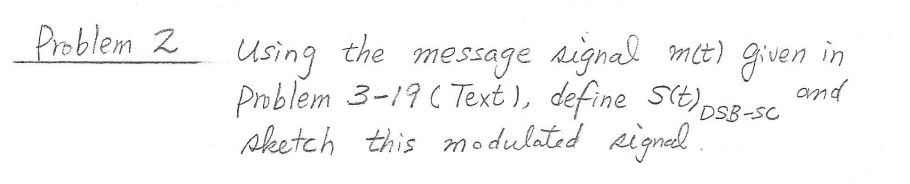 Problem 2 Using the message signal m(t) given in
Problem 3-19 (Text), define S(t)DSB-SC and
sketch this modulated signal.